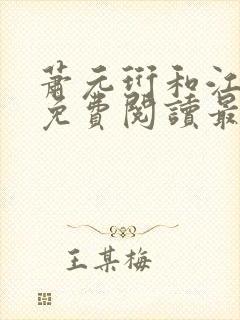 蕭元珩和江
免費閱讀最
王某梅